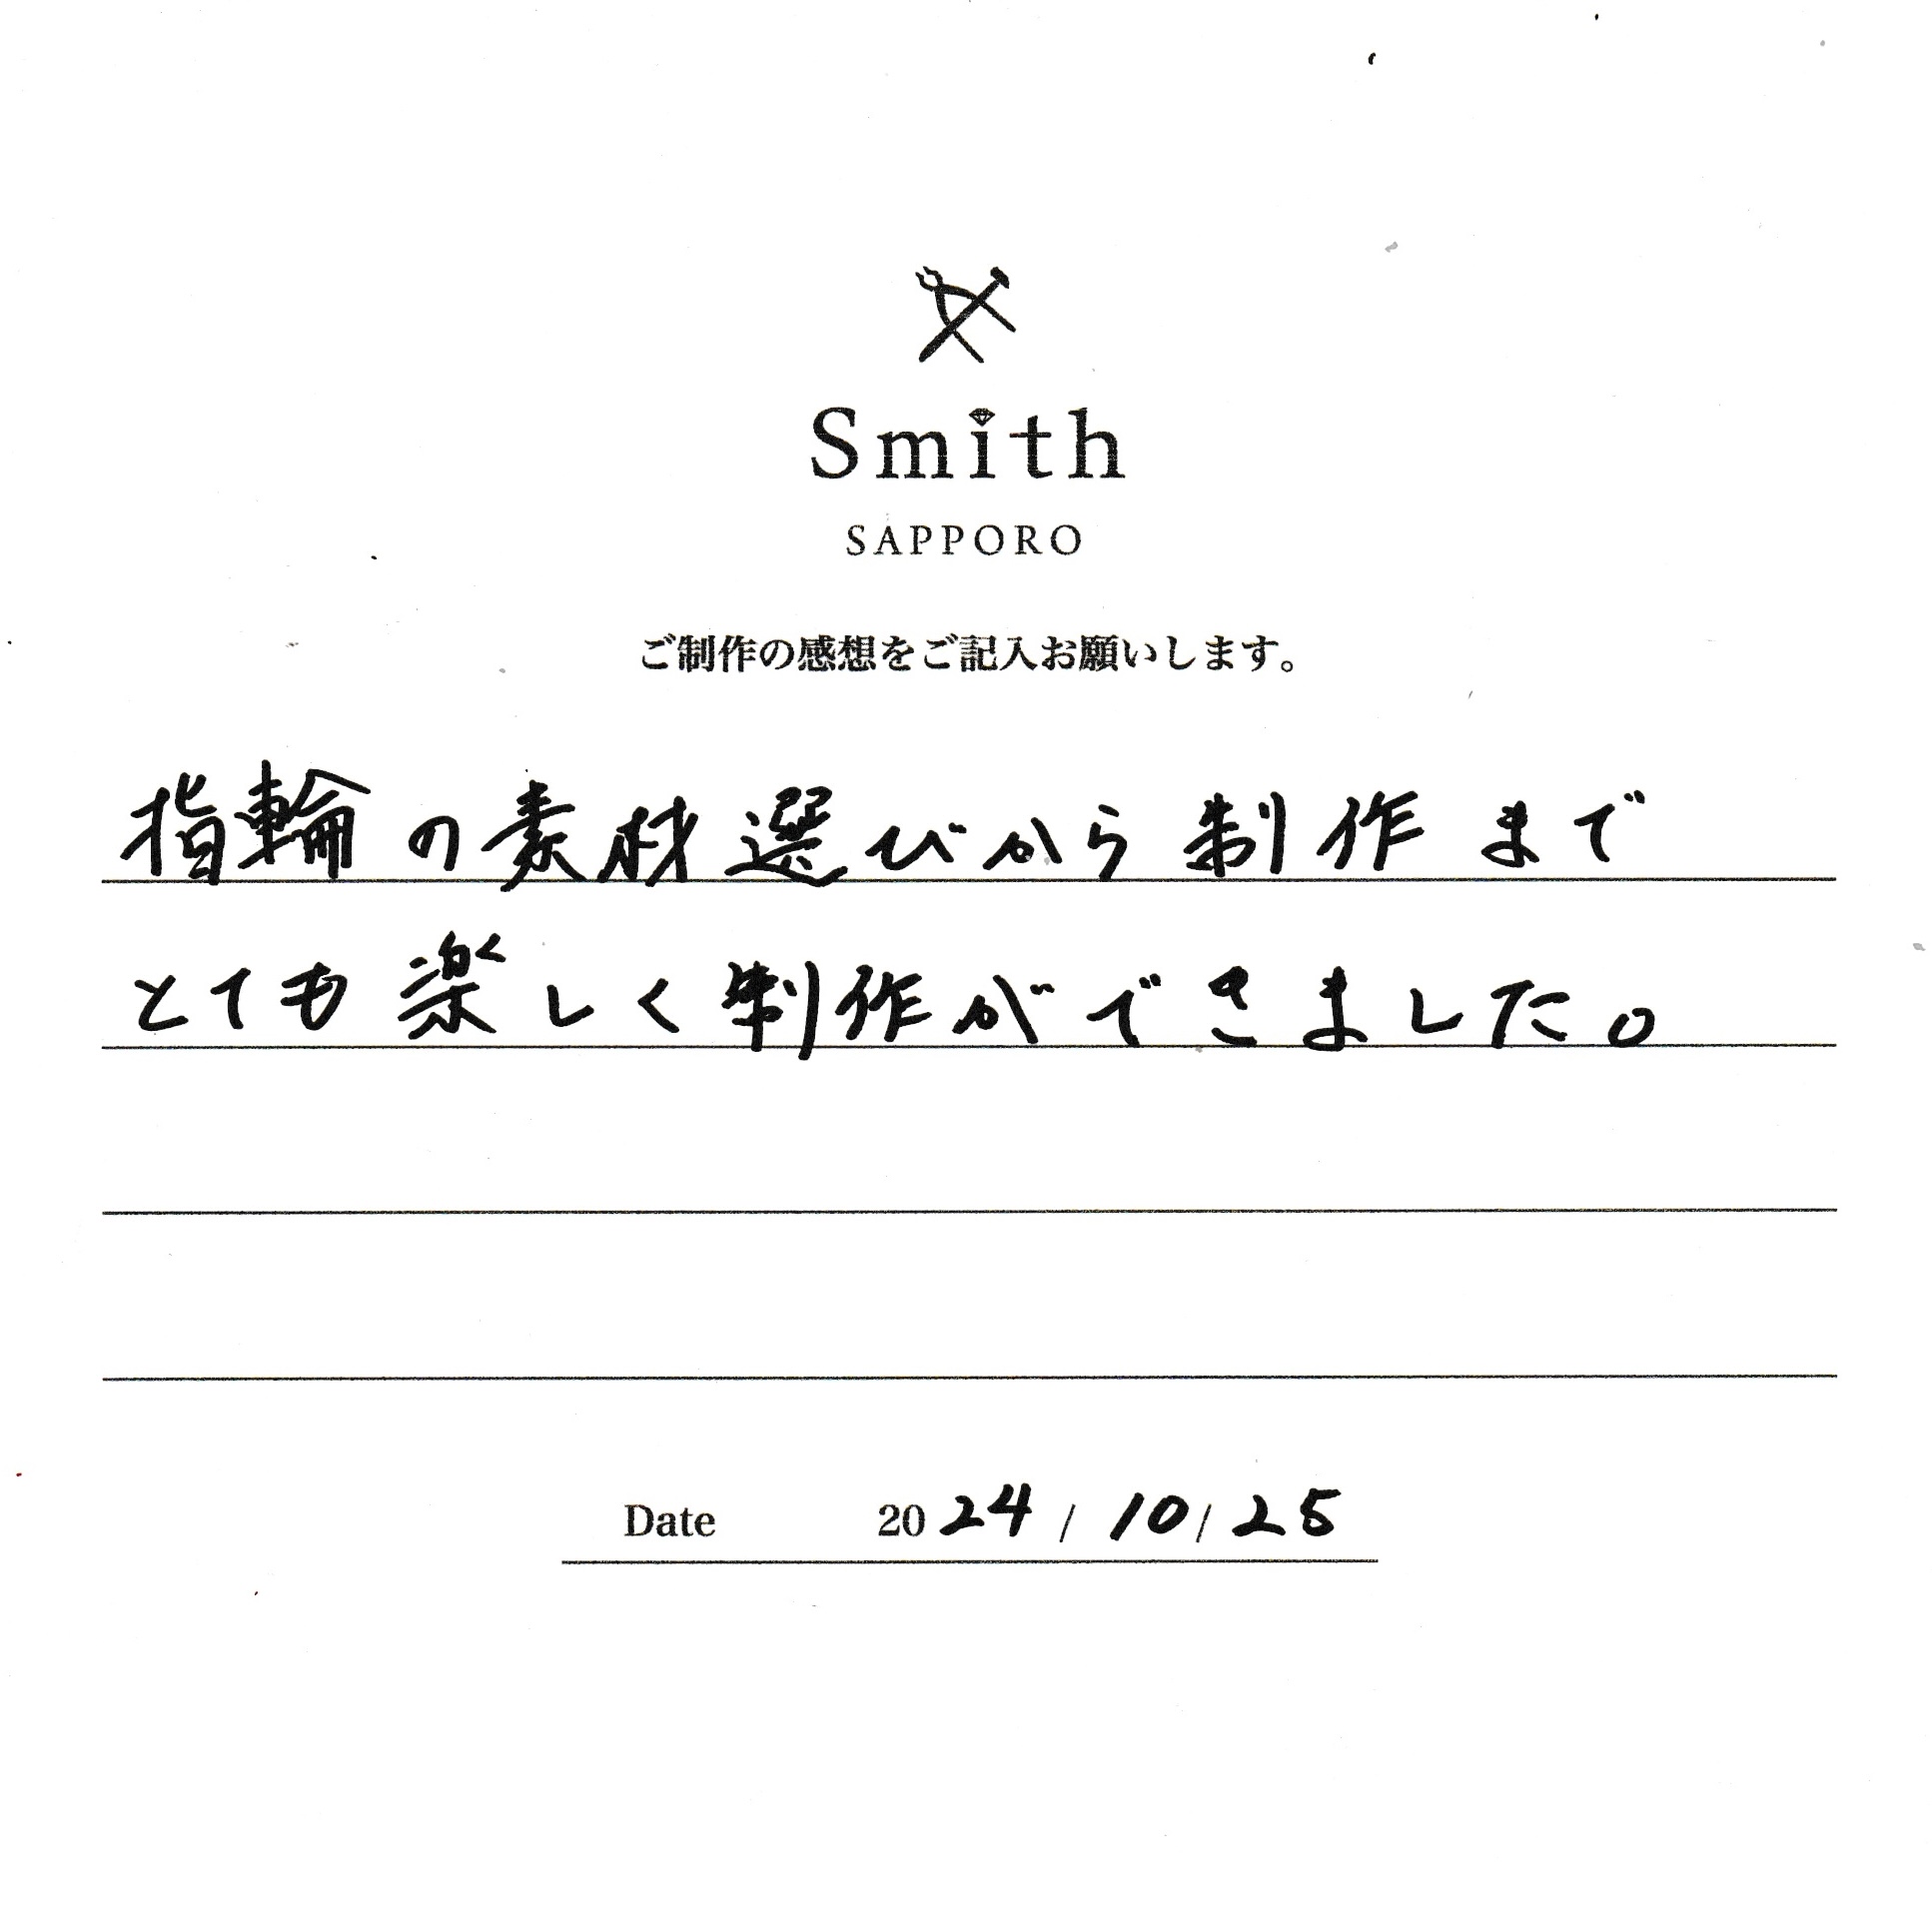 Smith
SAPPORO
ご制作の感想をご記入お願いします。
指輪の素材選びから制作まで
とても楽しく制作ができました。
Date 2024 / 10 / 25